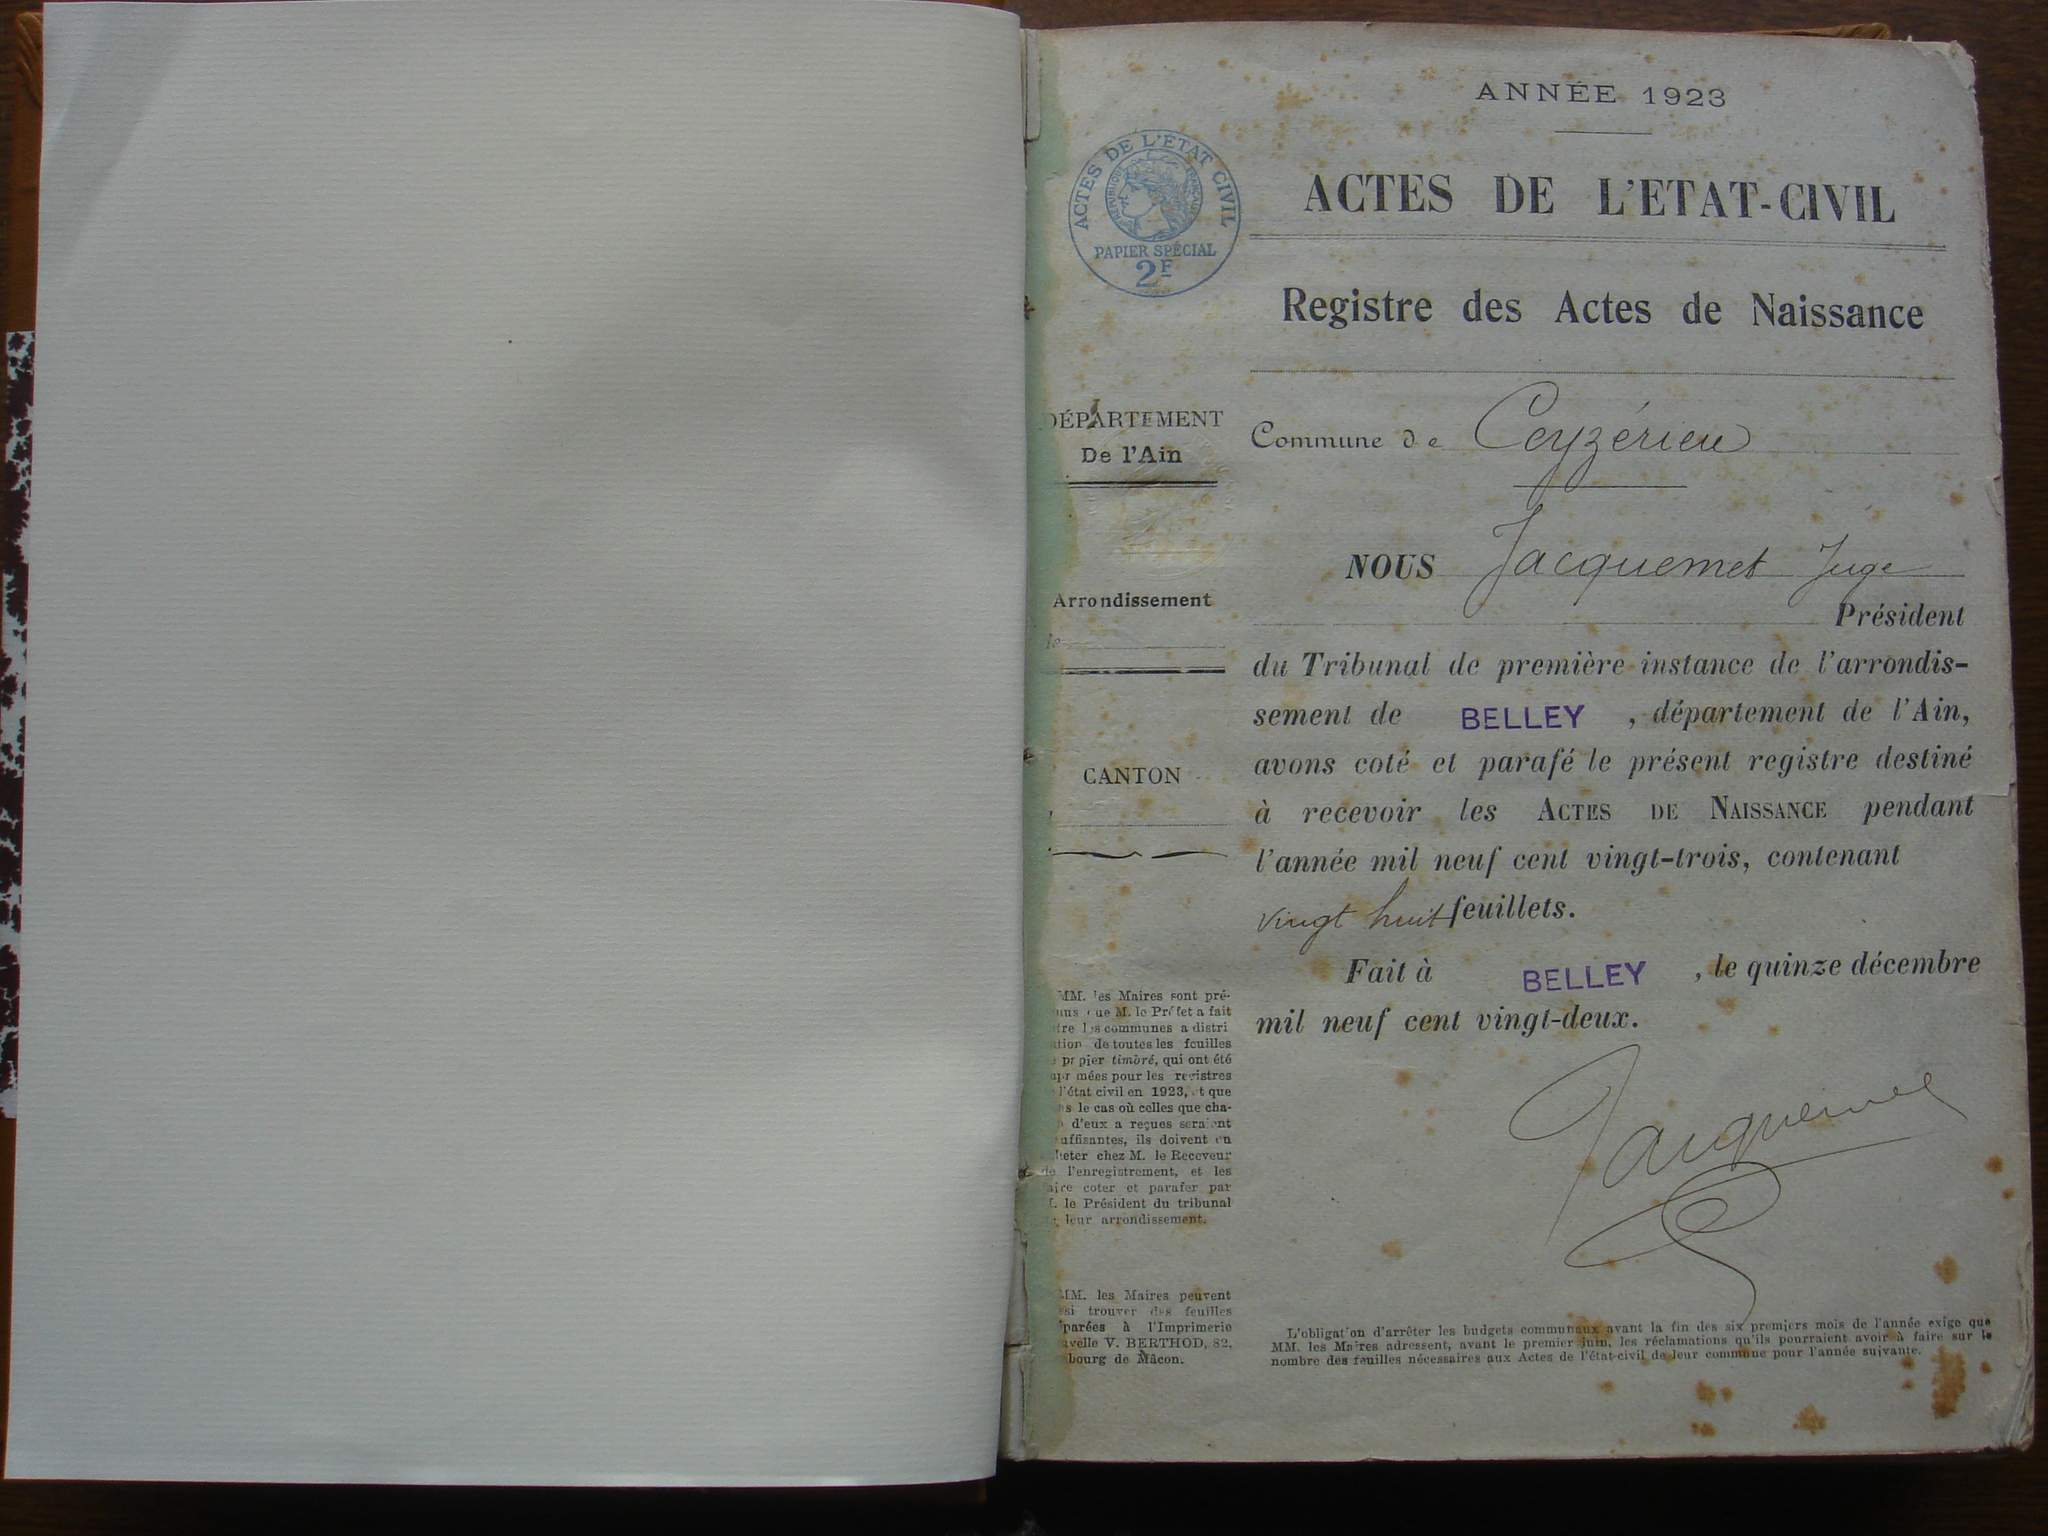 ANNÉE 1923
ACTES DE L'ÉTAT CIVIL
RÉPUBLIQUE FRANÇAISE
PAPIER SPÉCIAL
2F
ACTES DE L'ETAT-CIVIL
Registre des Actes de Naissance
DÉPARTEMENT
De l'Ain
Arrondissement
CANTON
MM. les Maires sont pré-
que M. le Préfet a fait
les communes a distri
de toutes les feuilles
papier timbré, qui ont été
mées pour les registres
l'état civil en 1923, et que
le cas où celles que cha-
d'eux a reçues seraient
uffisantes, ils doivent en
heter chez M. le Receveur
de l'enregistrement, et les
aire coter et parafer par
M. le Président du tribunal
leur arrondissement.
MM. les Maires peuvent
si trouver des feuilles
parées à l'Imprimerie
velle V. BERTHOD, 82,
bourg de Mâcon.
Commune de Ceyzérieu
NOUS Jacquemet Juge
Président
du Tribunal de première instance de l'arrondis-
sement de BELLEY, département de l'Ain,
avons coté et parafé le présent registre destiné
à recevoir les ACTES DE NAISSANCE pendant
l'année mil neuf cent vingt-trois, contenant
vingt huit feuillets.
Fait à BELLEY, le quinze décembre
mil neuf cent vingt-deux.
Jacquemet
L'obligation d'arrêter les budgets communaux avant la fin des six premiers mois de l'année exige que
MM. les Maires adressent, avant le premier juin, les réclamations qu'ils pourraient avoir à faire sur le
nombre des feuilles nécessaires aux Actes de l'état-civil de leur commune pour l'année suivante.